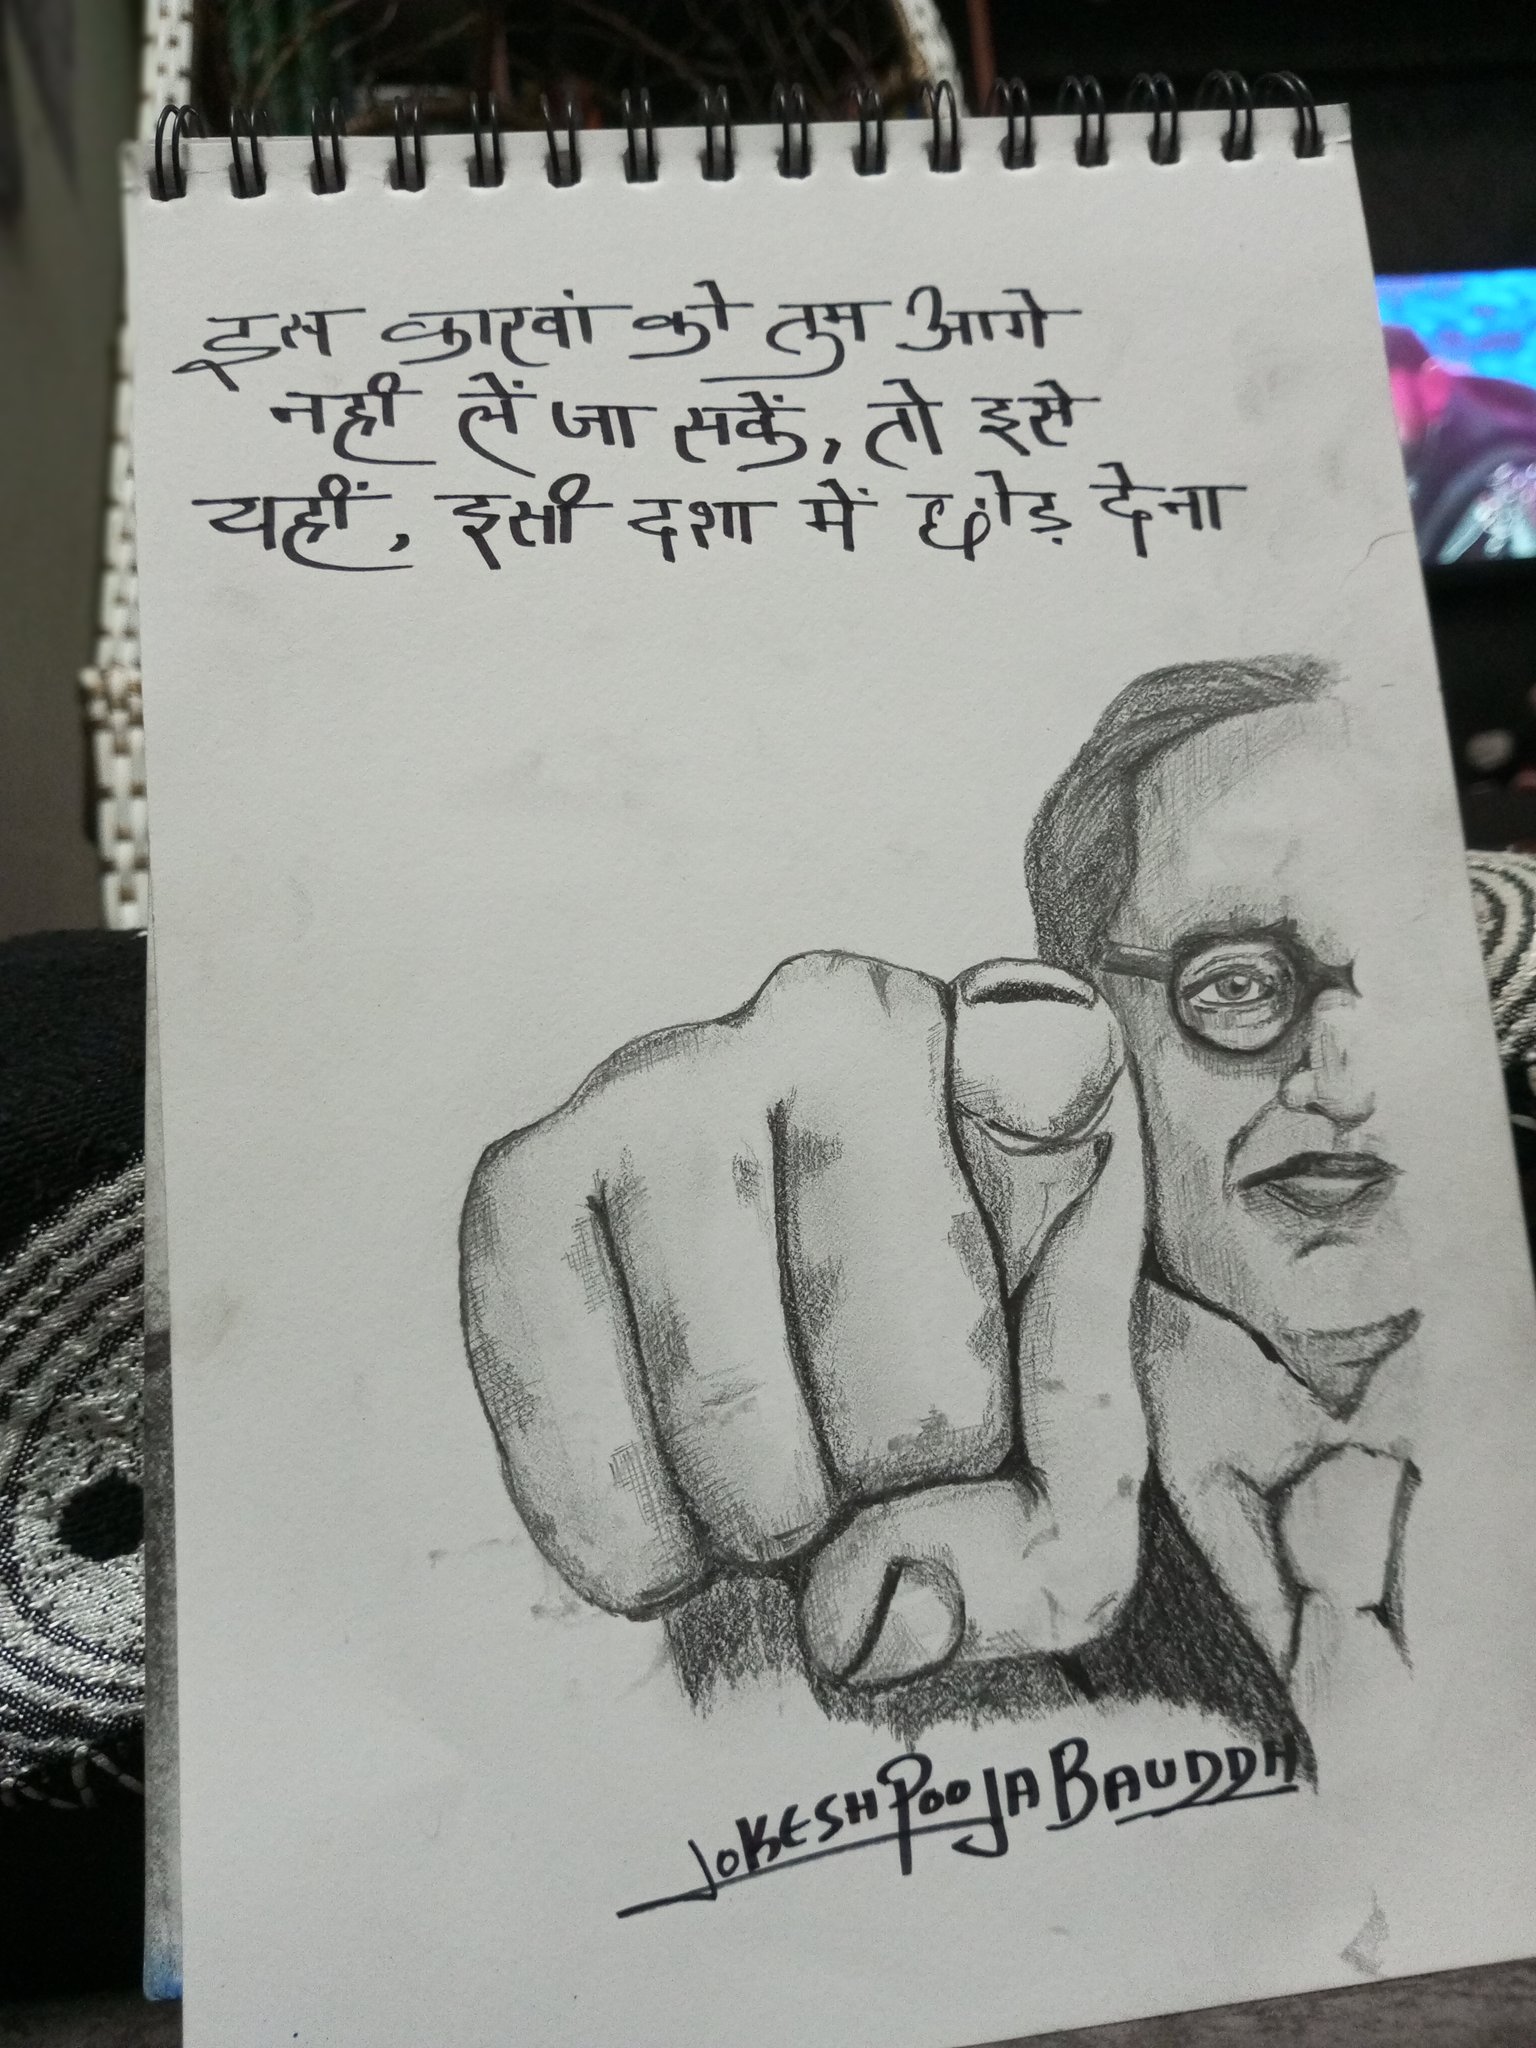 इस कारवां को तुम आगे
नही लें जा सकें, तो इसे
यहीं, इसी दशा में छोड़ देना
JOKESH POOJA BAUDDH